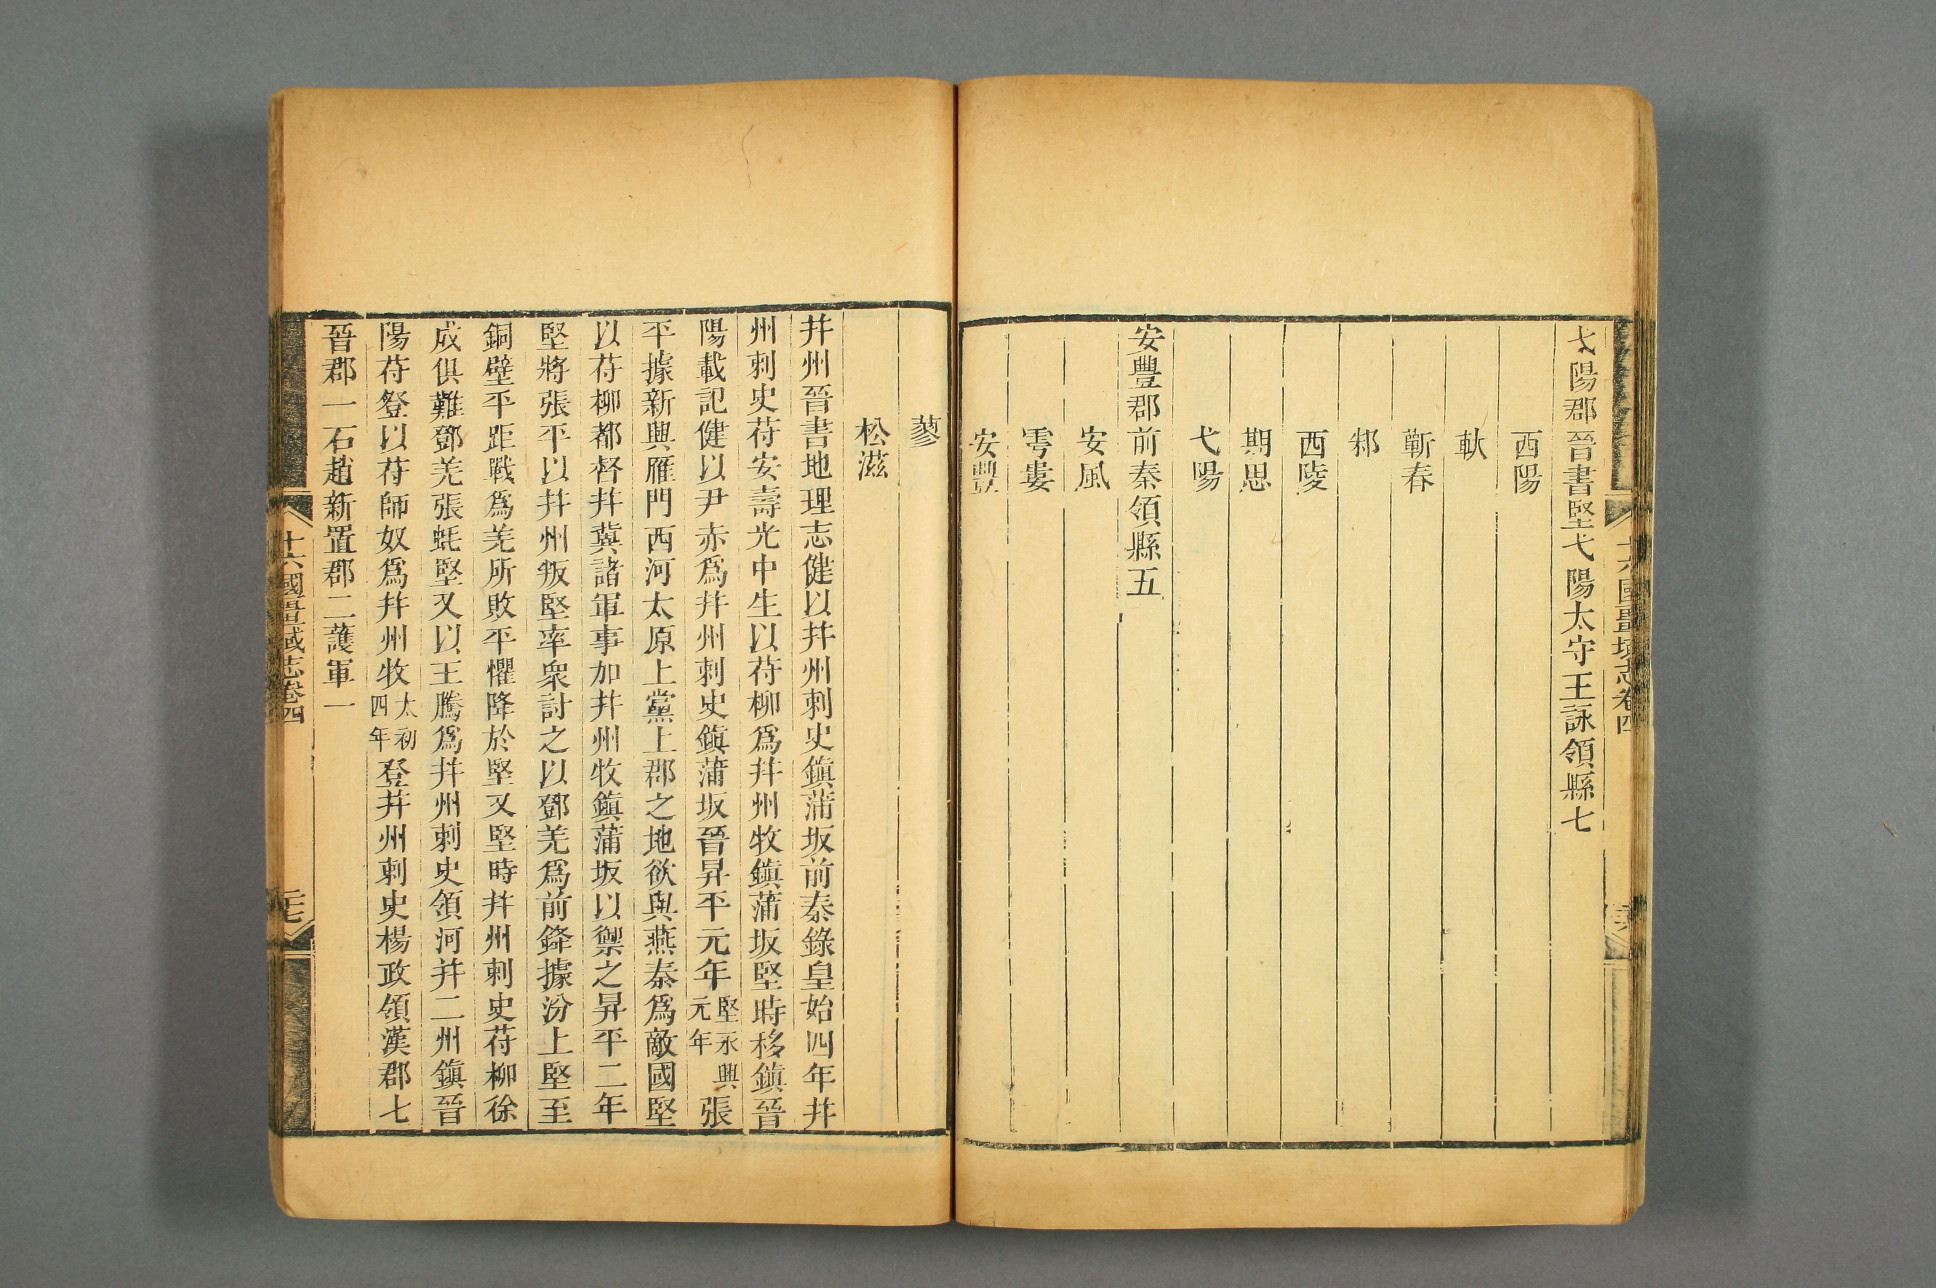 弋陽郡晉書堅弋陽太守王詠領縣七
西陽
軑
蘄春
邾
西陵
期思
弋陽
安豐郡前秦領縣五
安風
雩婁
安豐
蓼
松滋
幷州晉書地理志健以幷州刺史鎭蒲坂前秦錄皇始四年幷
州刺史苻安壽光中生以苻柳爲幷州牧鎭蒲坂堅時移鎭晉
陽載記健以尹赤爲幷州刺史鎭蒲坂晉昇平元年堅永興元年張
平據新興雁門西河太原上黨上郡之地欲與燕秦爲敵國堅
以苻柳都督幷冀諸軍事加幷州牧鎭蒲坂以禦之昇平二年
堅將張平以幷州叛堅率衆討之以鄧羌爲前鋒據汾上堅至
銅壁平距戰爲羌所敗平懼降於堅又堅時幷州刺史苻柳徐
成俱難鄧羌張蚝堅又以王騰爲幷州刺史領河幷二州鎭晉
陽苻登以苻師奴爲幷州牧太初四年登幷州刺史楊政領漢郡七
晉郡一石趙新置郡二護軍一
十六國疆域志卷四
十六國疆域志卷四